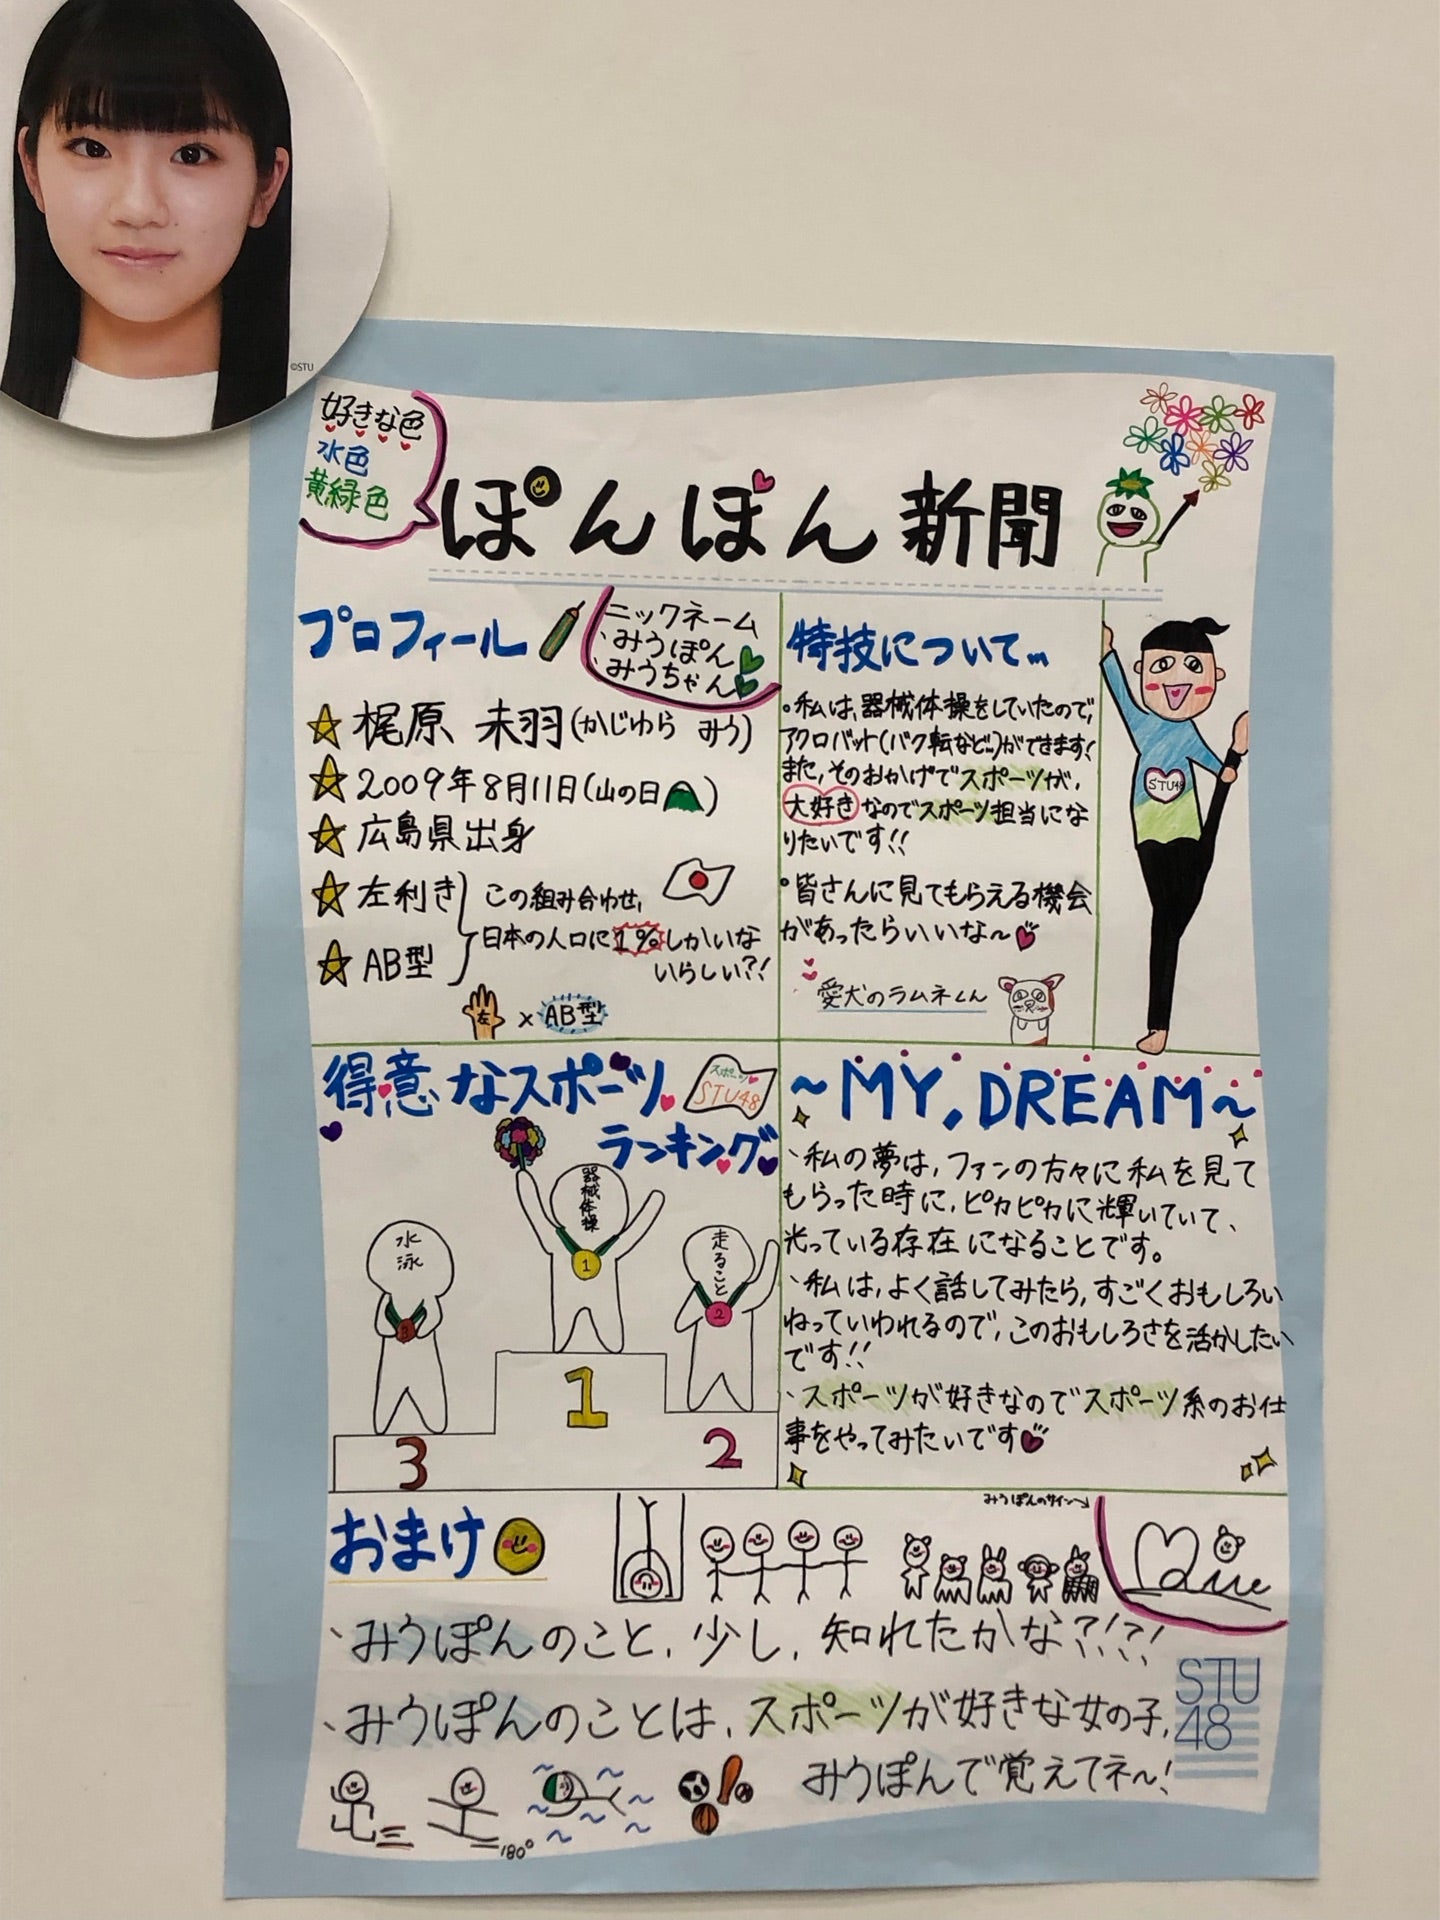 ©STU
好きな色
水色
黄緑色
ぽんぽん新聞
プロフィール
ニックネーム
・みうぽん
・みうちゃん
梶原 未羽(かじゆら みう)
2009年8月11日(山の日)
広島県出身
左利き
AB型
この組み合わせ、
日本の人口に1%しかいな
いらしい?!
左×AB型
特技について…
・私は、器械体操をしていたので、
アクロバット(バク転など…)ができます!
また、そのおかげでスポーツが、
大好きなのでスポーツ担当にな
りたいです!!
・皆さんに見てもらえる機会
があったらいいな〜
愛犬のラムネくん
STU48
得意なスポーツ
ランキング
スポーツ
STU48
器械体操
1
水泳
3
走ること
2
1
3
2
〜MY,DREAM〜
・私の夢は、ファンの方々に私を見て
もらった時に、ピカピカに輝いていて、
光っている存在になることです。
・私は、よく話してみたら、すごくおもしろい
ねっていわれるので、このおもしろさを活かしたい
です!!
・スポーツが好きなのでスポーツ系のお仕
事をやってみたいです
おまけ
みうぽんのサイン→
Miu
・みうぽんのこと、少し、知れたかな?!?!
・みうぽんのことは、スポーツが好きな女の子、
みうぽんで覚えてネ〜!
STU
48
180°